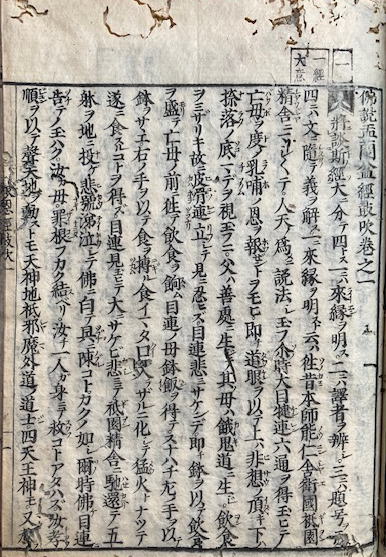 一
一經
大意
佛説盂蘭盆經鼓吹卷之一
将談斯經大ニ分テ四トス一ニハ來縁ヲ明ス二ニハ譯者ヲ辨シ三ニハ題号ヲ
四ニハ文ニ隨テ義ヲ解ス一ニ來縁ヲ明スト云ハ往昔本師能仁舎衛國祇園
精舎ニ人天ノ為ニ説法シ玉フ尒時大目揵連六通ヲ得玉ヒテ
亡母ヲ度シ乳哺ノ恩ヲ報セントヲモヒ即チ道眼ヲ以テ上ハ非想ノ頂キ下ハ
捺落ノ底マテヲ視玉フニ父ハ善處ニ生レ其母ハ餓鬼道ニ生レ飲食
ヲミザリキ故ニ皮骨連立シテ見ルニ忍ヒズ目連悲サケンデ即チ鉢ヲ以テ飲食
ヲ盛テ亡母ノ前ニ往テ飲食ヲ餉ム目連ノ母鉢飯ヲ得テスナハチ左ノ手ヲ以テ
鉢ヲサエ右ノ手ヲ以テ食ヲ摶シ食イマタ口ニ入ザルニ化シテ猛火トナツテ
遂ニ食スルコトヲ得ズ目連見玉ヒテ大ニサケビ悲ミテ祇園精舎ニ馳還テ五
躰ヲ地ニ投ケ悲號涕泣シテ佛ニ白テ具ニ陳コトカクノ如シ尓時佛目連ニ
告テ玉ハク汝カ母罪根フカク結ヘリ汝チ一人カ力ニテ救コトアタハズ汝孝
順ヲ以テ聲天地ヲ動ストモ天神地祇邪魔外道ノ道士四天王神モ又